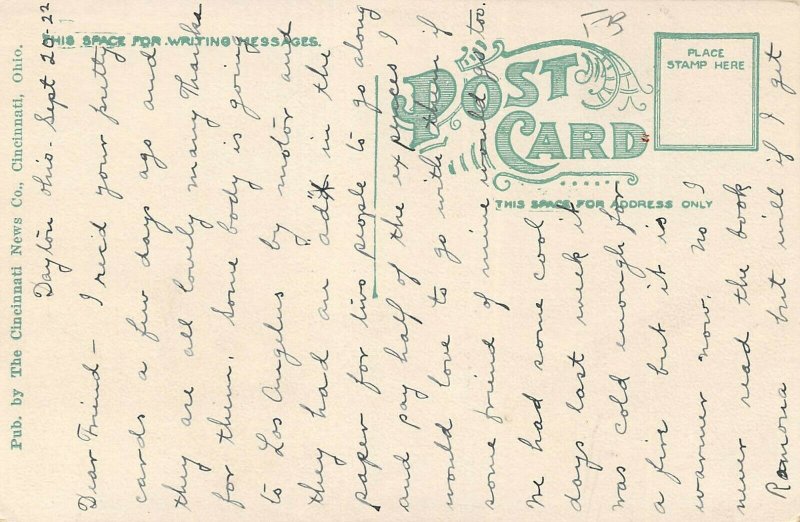 THIS SPACE FOR WRITING MESSAGES.
POST
CARD
PLACE
STAMP HERE
THIS SPACE FOR ADDRESS ONLY
Pub. by The Cincinnati News Co., Cincinnati, Ohio.
Dayton Ohio - Sept 20-22
Dear Friend - I rec'd your pretty
cards a few days ago and
they are all lovely many Thanks
for them. Some body is going
to Los Angelus by motor and
they had an "ad" in the
paper for two people to go along
and pay half of the expences I
would love to go with them if
some friend of mine would go too.
We had some cool
days last week it
was cold enough for
a fire but it is
warmer now. No I
never read the book
Ramona but will if I get